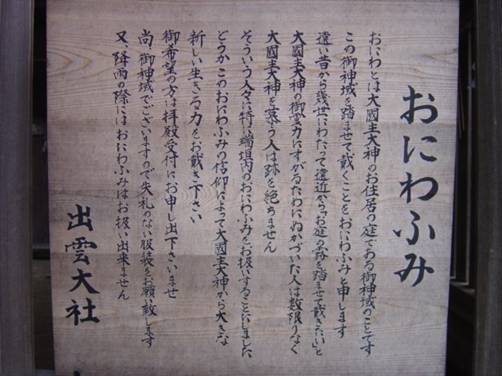 おにわふみ
おにわとは大國主大神のお住居の庭である御神域のことです
この御神域を踏ませて戴くことをおにわふみと申します
遠い昔から幾世にわたって遠近からお庭の砂を踏ませて戴きたいと
大國主大神の御霊力にすがるためにぬかづいた人は数限りなく
大國主大神を慕う人は跡を絶ちません
そういう人々に特に瑞垣内のおにわふみをお扱いすることにしました
どうかこのおにわふみの信仰によって大國主大神から大きな
新しい生きる力をお戴き下さい
御希望の方は拝殿受付にお申し出下さいませ
尚御神域でございますので失礼のない服装をお願い致します
又、降雨の際にはおにわふみはお扱い出来ません
出雲大社